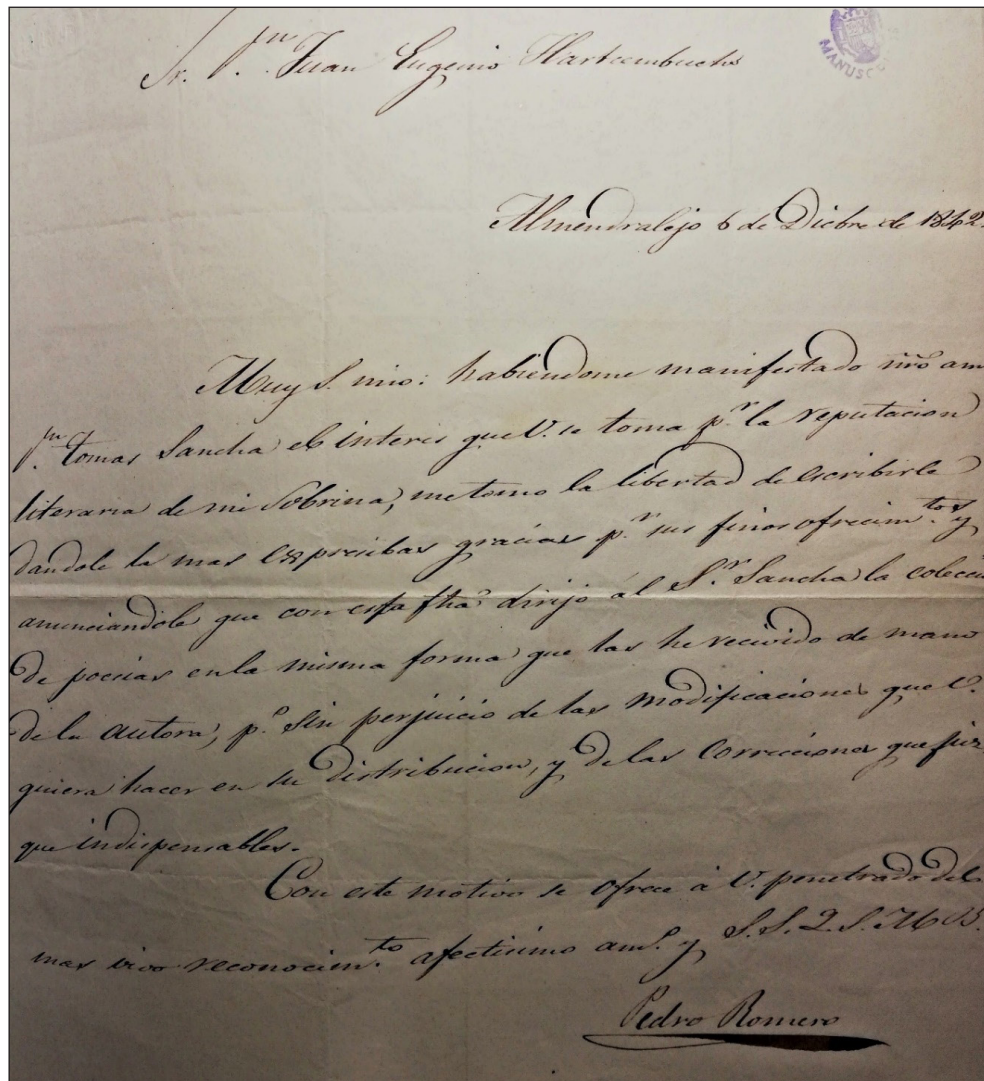 Sr. Dn. Juan Eugenio Hartcembuchs
MANUSC
Almendralejo 6 de Dicbre de 1842.
Muy S. mio: habiendome manifestado nrõ am
Dn. Tomas Sancha el interes que V. se toma pr. la reputacion
literaria de mi Sobrina, me tomo la libertad de escribirle
dandole la mas expresibas gracias pr. sus finos ofrecimtos. y
anunciandole que con esta fha dirijo al Sr. Sancha la colecci
de poesias en la misma forma que las he recivido de mano
de la autora, po. sin perjuicio de las modificaciones que V.
quiera hacer en su distribucion, y de las correcciones que juz
que indispensables.
Con este motivo se ofrece á V. penetrado del
mas vivo reconocimto. afectisimo amo. y S. S. Q. S. M. B.
Pedro Romero